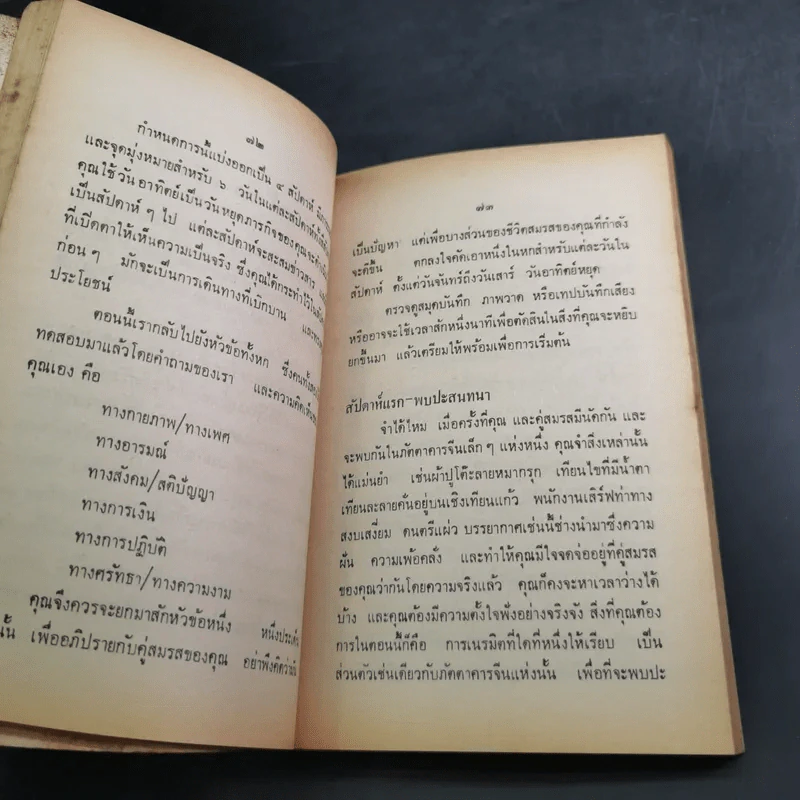 ๗๒
กำหนดการนี้แบ่งออกเป็น ๔ สัปดาห์
และจุดมุ่งหมายสำหรับ ๖ วันในแต่ละสัปดาห์
คุณใช้วันอาทิตย์เป็นวันหยุดภารกิจของคุณ
เป็นสัปดาห์ๆ ไป แต่ละสัปดาห์จะสะสมข่าวสาร
ที่เปิดตาให้เห็นความเป็นจริง ซึ่งคุณได้กระทำไว้
ก่อนๆ มักจะเป็นการเดินทางที่เบิกบาน
ประโยชน์
ตอนนี้เรากลับไปยังหัวข้อทั้งหก
ทดสอบมาแล้วโดยคำถามของเรา และความคิด
คุณเอง คือ
ทางกายภาพ/ทางเพศ
ทางอารมณ์
ทางสังคม/สติปัญญา
ทางการเงิน
ทางการปฏิบัติ
ทางศรัทธา/ทางความงาม
คุณจึงควรจะยกมาสักหัวข้อหนึ่ง
นั้น เพื่ออภิปรายกับคู่สมรสของคุณ อย่าพึงคิดว่า
๗๓
เป็นปัญหา แต่เพื่อบางส่วนของชีวิตสมรสของคุณที่กำลัง
จะดีขึ้น ตกลงใจคัดเอาหนึ่งในหกสำหรับแต่ละวันใน
สัปดาห์ ตั้งแต่วันจันทร์ถึงวันเสาร์ วันอาทิตย์หยุด
ตรวจดูสมุดบันทึก ภาพวาด หรือเทปบันทึกเสียง
หรืออาจจะใช้เวลาสักหนึ่งนาทีเพื่อตัดสินในสิ่งที่คุณจะหยิบ
ยกขึ้นมา แล้วเตรียมให้พร้อมเพื่อการเริ่มต้น
สัปดาห์แรก-พบปะสนทนา
จำได้ไหม เมื่อครั้งที่คุณ และคู่สมรสมีนัดกัน และ
จะพบกันในภัตตาคารจีนเล็กๆ แห่งหนึ่ง คุณจำสิ่งเหล่านั้น
ได้แม่นยำ เช่นผ้าปูโต๊ะลายหมากรุก เทียนไขที่มีน้ำตา
เทียนละลายคั่นอยู่บนเชิงเทียนแก้ว พนักงานเสิร์ฟท่าทาง
สงบเสงี่ยม ดนตรีแผ่ว บรรยากาศเช่นนี้ช่างนำมาซึ่งความ
ฝัน ความเพ้อคลั่ง และทำให้คุณมีใจจดจ่ออยู่ที่คู่สมรส
ของคุณว่ากันโดยความจริงแล้ว คุณก็คงจะหาเวลาว่างได้
บ้าง และคุณต้องมีความตั้งใจฟังอย่างจริงจัง สิ่งที่คุณต้อง
การในตอนนี้ก็คือ การเนรมิตที่ใดที่หนึ่งให้เรียบ เป็น
ส่วนตัวเช่นเดียวกับภัตตาคารจีนแห่งนั้น เพื่อที่จะพบปะ